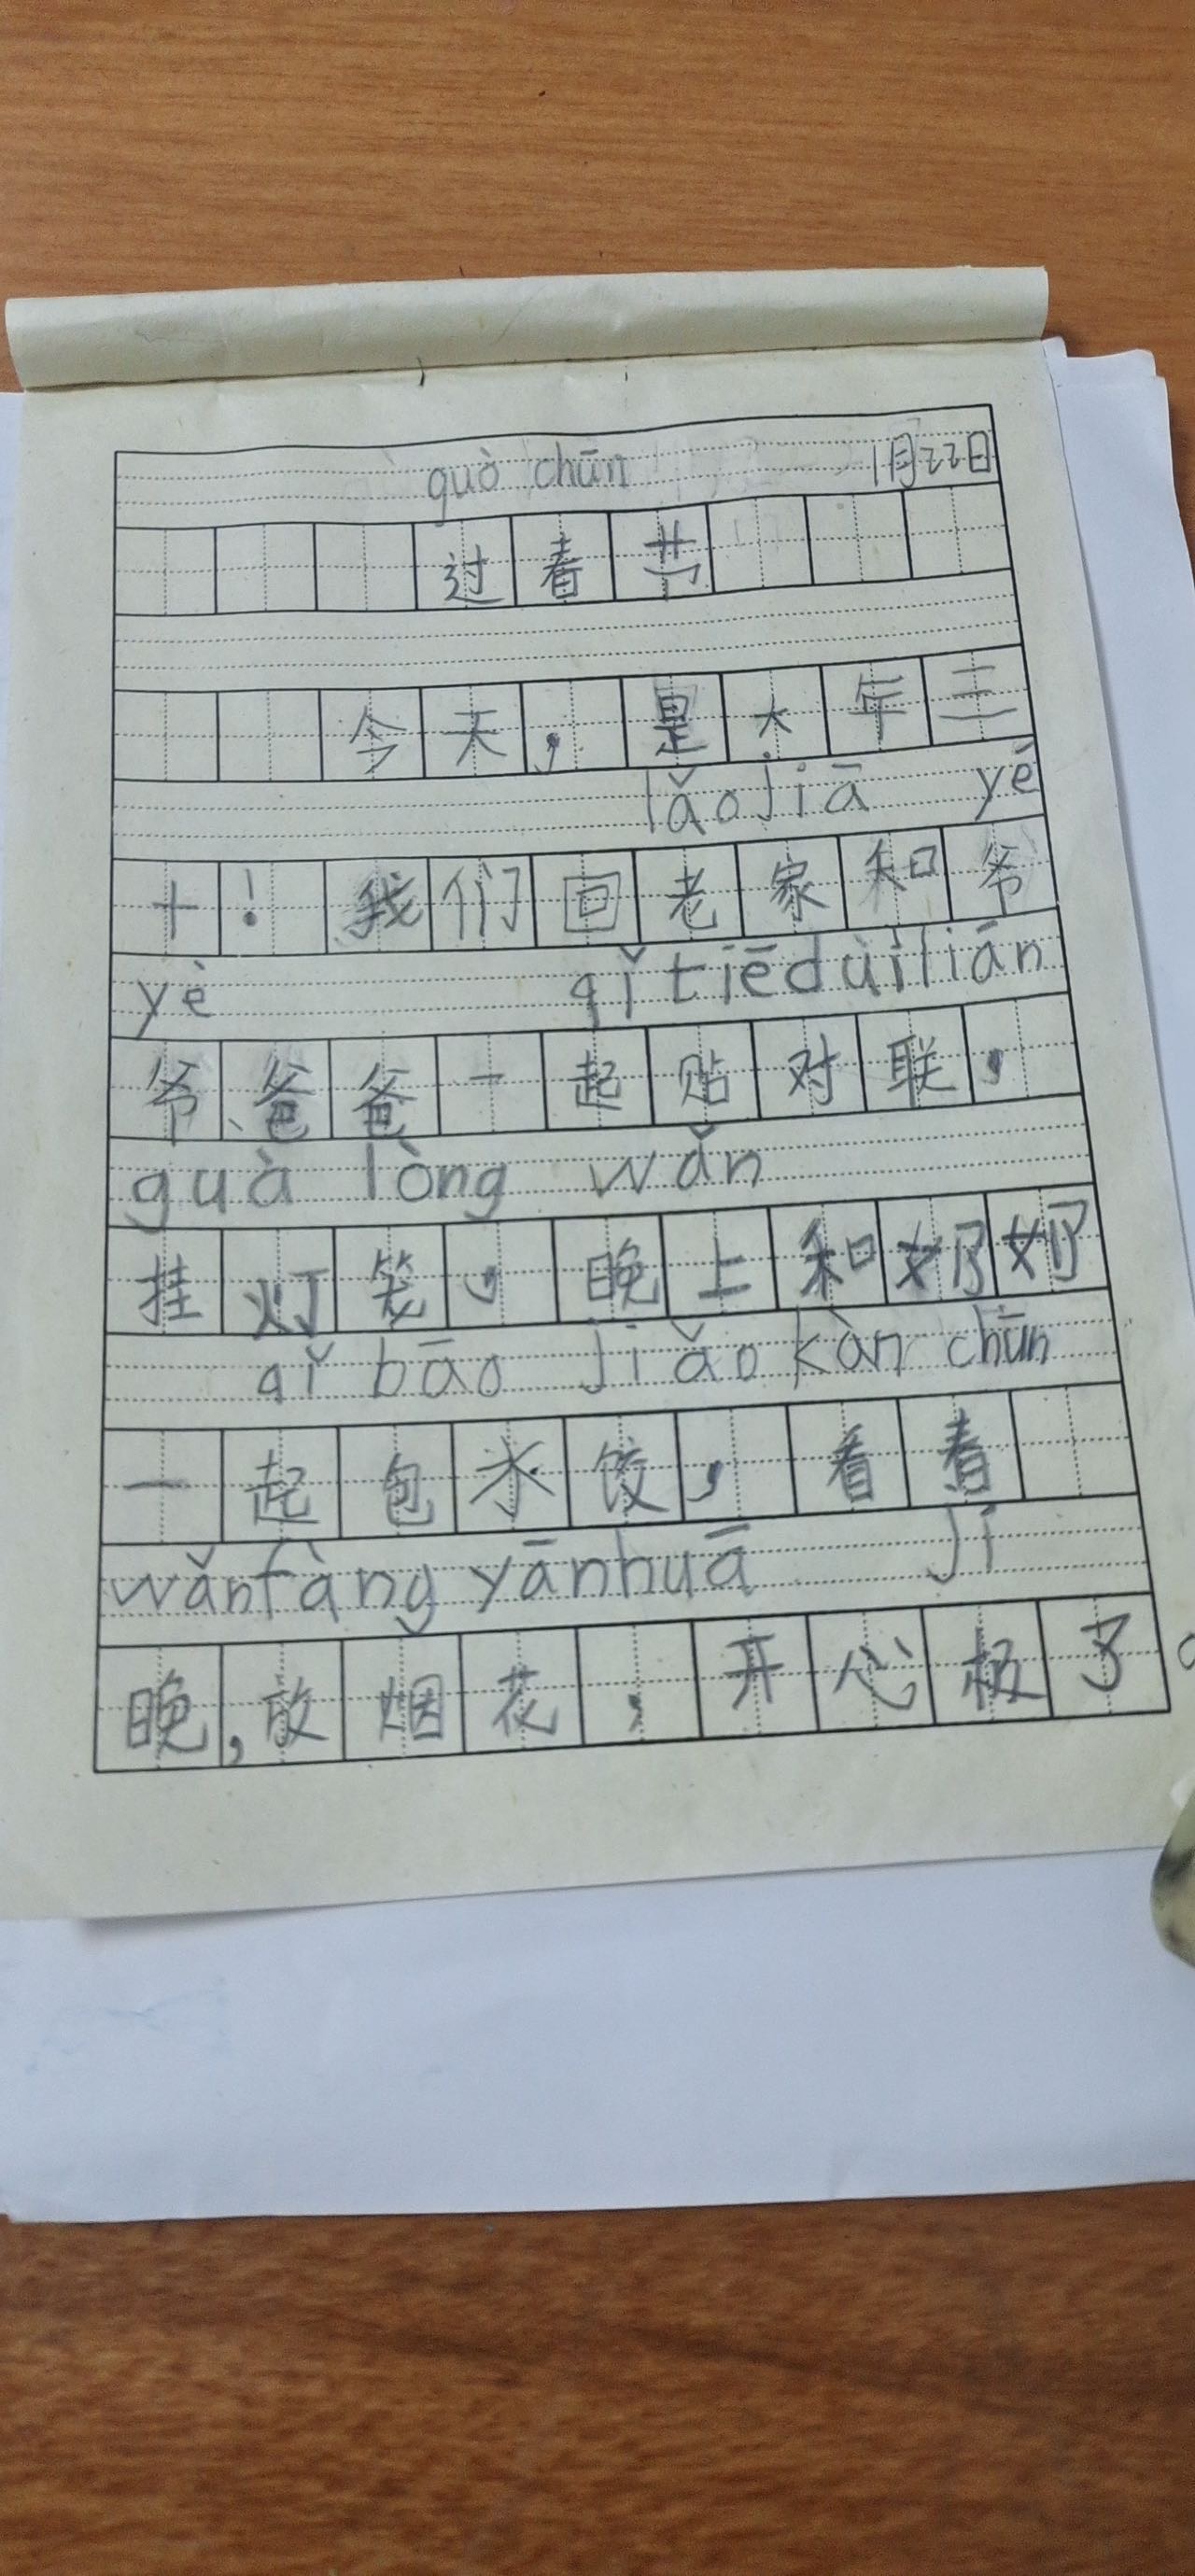 guò chūn 1月22日
过春节
今天，是大年三
lǎo jiā yé
十！我们回老家和爷
yè qǐ tiē duì lián
爷、爸爸一起贴对联，
guà lòng wǎn
挂灯笼，晚上和奶奶
qǐ bāo jiǎo kàn chūn
一起包水饺，看春
wǎn fàng yān huā jí
晚，放烟花，开心极了。